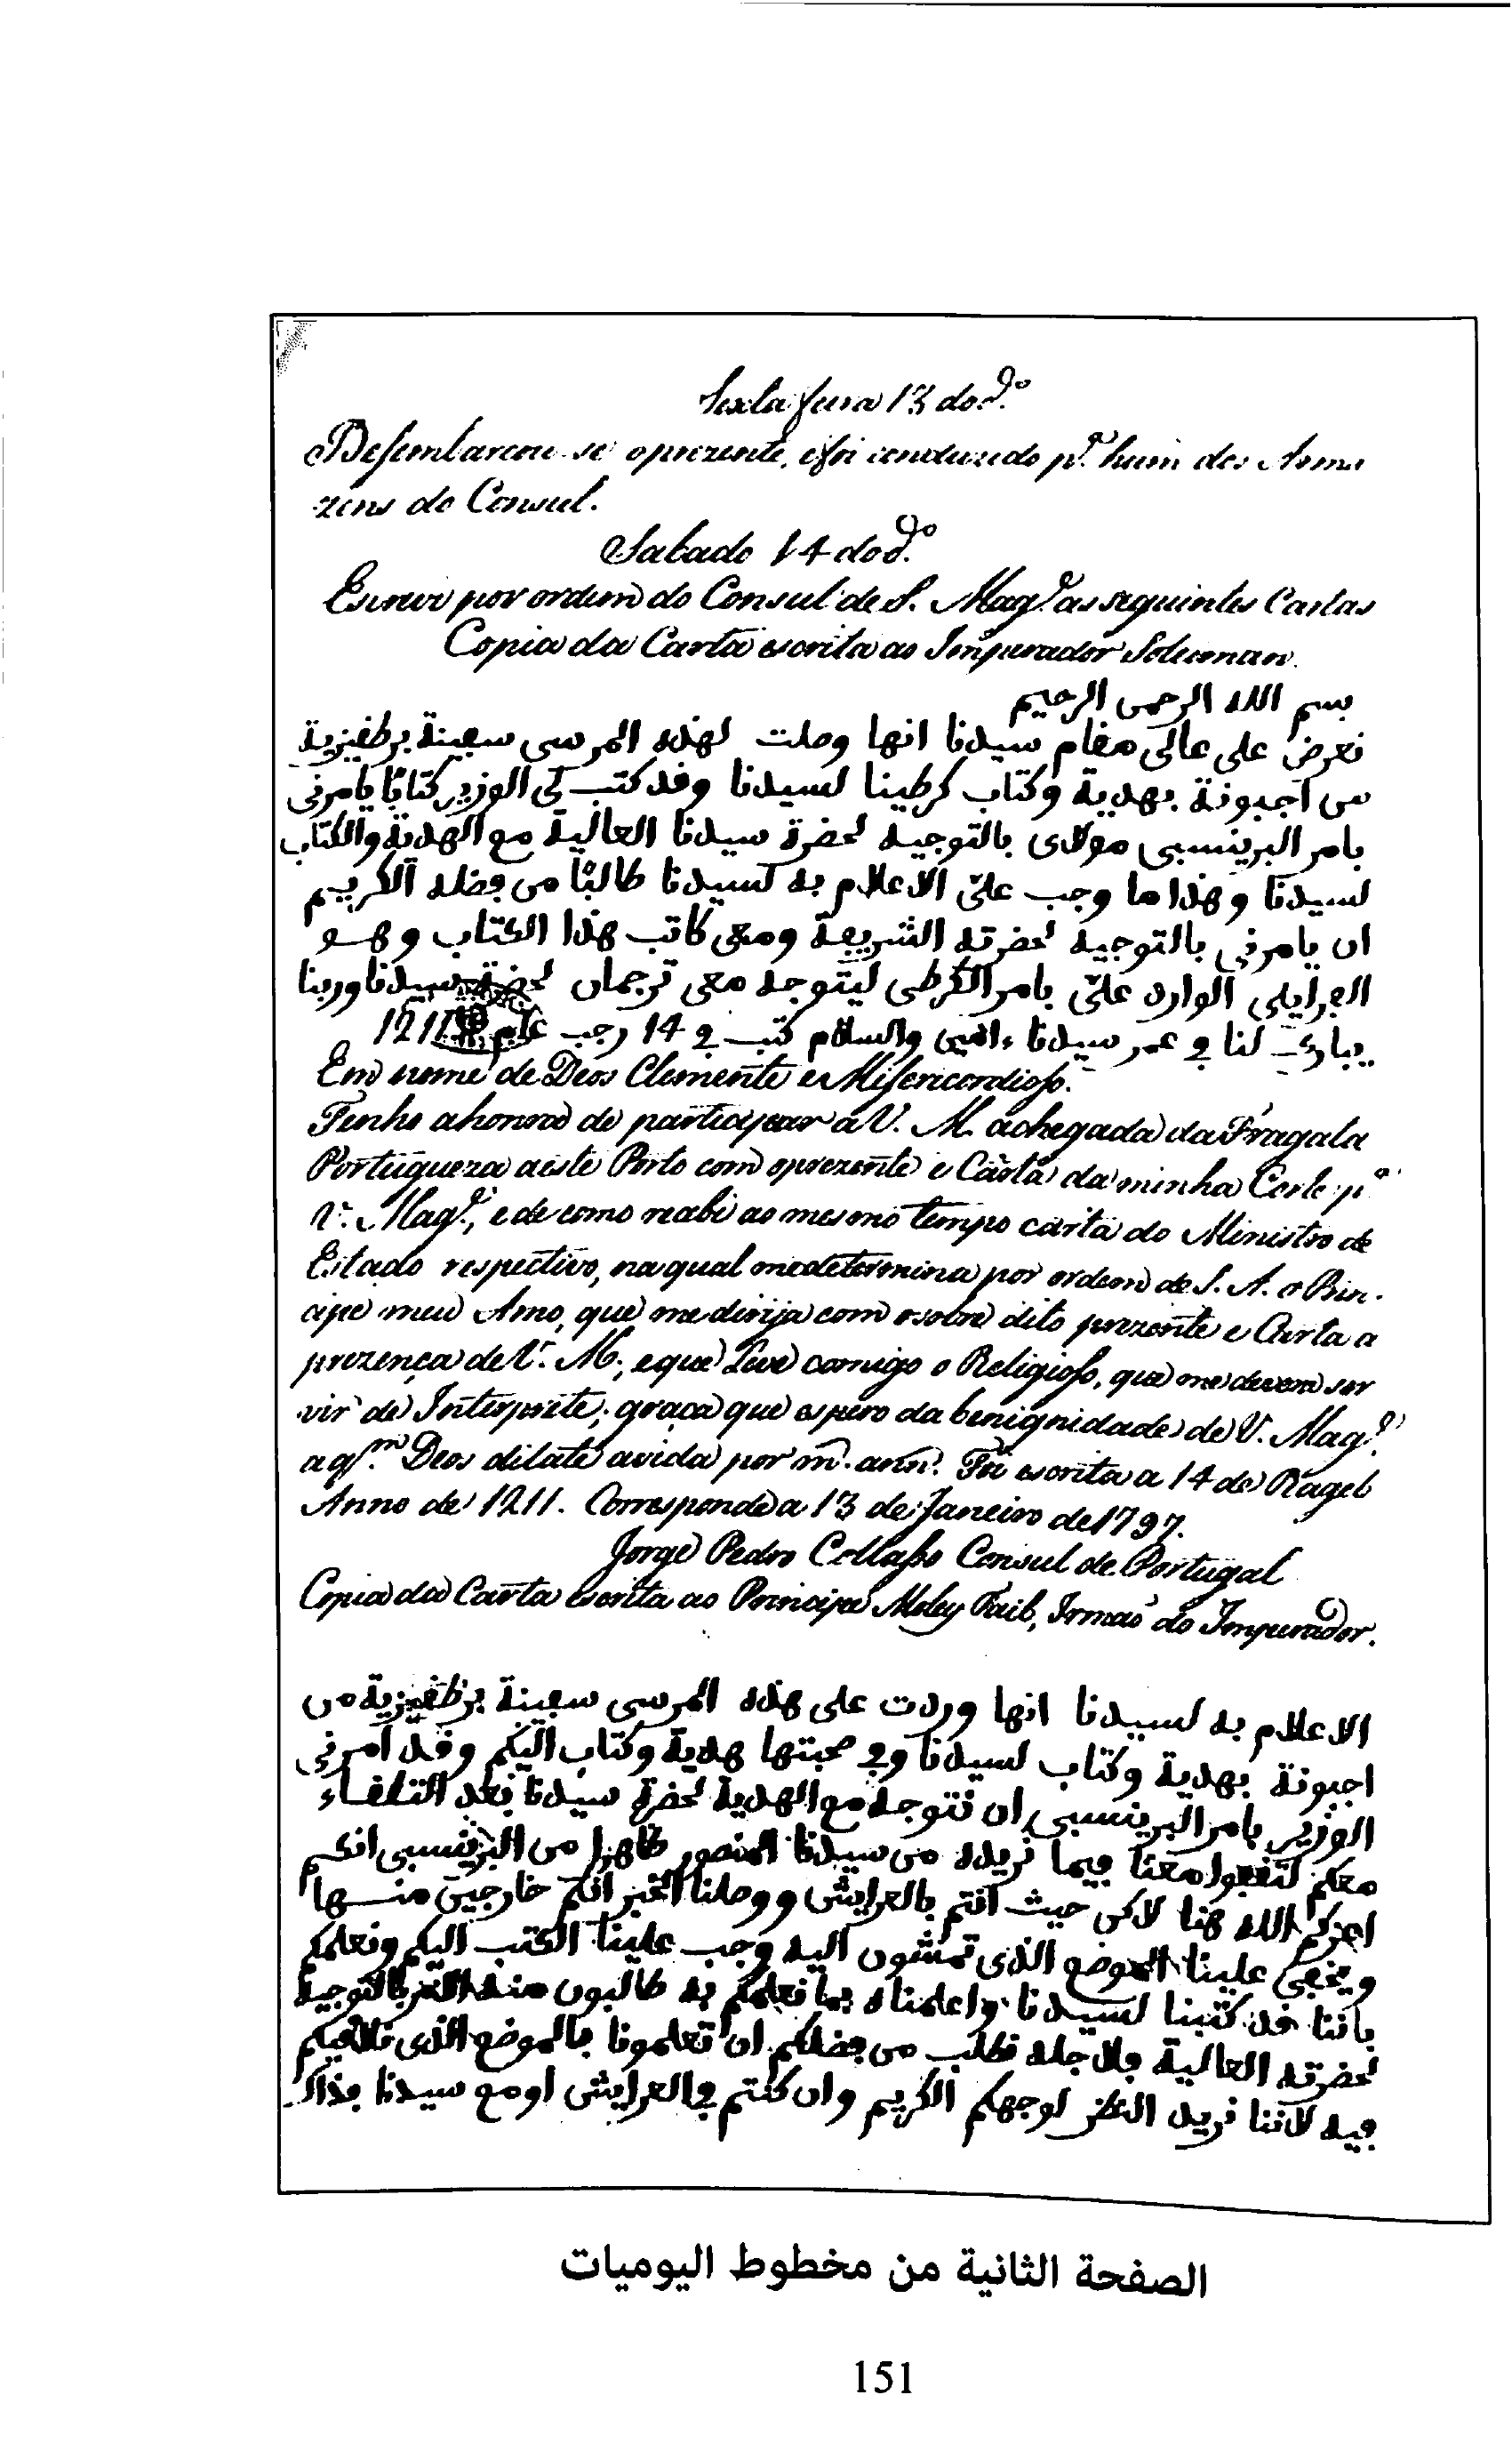 Sexta feira 13 do d.º
Desembarcou-se o prezente, e foi conduzido p.ª hum dos Arma
zens do Consul.
Sabado 14 do d.º
Escrevi por ordem do Consul de S. Mag.ᵉ as seguintes Cartas
Copia da Carta escrita ao Imperador Soleiman.
بسم الله الرحمن الرحيم
نعرض على عالى مقام سيدنا انها وصلت لهذه المرسى سفينة برطقيزية
من اجبونة بهدية وكتاب كرطينا لسيدنا وقد كتب لي الوزير كتابًا يامرنى
بامر البرينسبى مولاى بالتوجيه لحضرة سيدنا العالية مع الهدية والكتاب
لسيدنا وهذا ما وجب علىّ الاعلام به لسيدنا طالبًا من فضله الكريم
ان يامرنى بالتوجيه لحضرته الشريفة ومعى كاتب هذا الكتاب وهو
الفرايلى الوارد علىّ بامر الكرطى ليتوجه معى ترجمان لحضرة سيدنا وربنا
يبارك لنا في عمر سيدنا ءامين والسلام كتب في 14 رجب عام 1211
Em nome de Deos Clemente e Misericordioso.
Tenho a honra de participar a V. M. a chegada da Fragata
Portugueza a este Porto com o prezente e Carta da minha Corte p.ª
V. Mag.ᵉ, e de como recebi ao mesmo tempo carta do Ministro de
Estado respectivo, na qual me determina por ordem de S. A. o Prin-
cipe meu Amo, que me dirija com o sobre dito prezente e Carta a
prezença de V. M., e que leve comigo o Religioso, que me devera ser
vir de Interprete; graça que espero da benignidade de V. Mag.ᵉ
a q.ᵐ Deos dilate a vida por m. ann. Foi escrita a 14 de Rageb
Anno de 1211. Corresponde a 13 de Janeiro de 1797.
Jorge Pedro Collasso Consul de Portugal
Copia da Carta escrita ao Principe Moley Taib, Irmaõ do Imperador.
الاعلام به لسيدنا انها وردت على هذه المرسى سفينة برطقيزية من
اجبونة بهدية وكتاب لسيدنا وفي صحبتها هدية وكتاب اليكم وقد امرنى
الوزير بامر البرينسبى ان نتوجه مع الهدية لحضرة سيدنا بعد التلقاء
معكم لتقفوا معنا فيما نريده من سيدنا المنصور ظاهرا من البرينسبى انكم
اعزكم الله هنا لاكن حيث انتم بالعرايش ووصلنا الخبر انكم خارجين منها
ويخفى علينا الموضع الذى تمشون اليه وجب علينا الكتب اليكم ونعلمكم
باننا قد كتبنا لسيدنا واعلمناه بما نعلمكم به طالبون منه بالتوجيه
لحضرته العالية فلاجله نطلب من فضلكم ان تعلمونا بالموضع الذى نلاقيكم
فيه لاننا نريد النظر لوجهكم الكريم وان كنتم في العرايش او مع سيدنا فذاك
الصفحة الثانية من مخطوط اليوميات
151